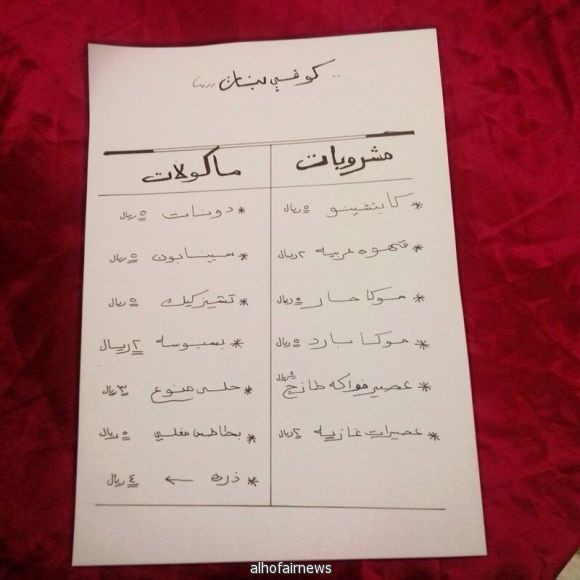 كوفي بنات
مشروبات
* كابتشينو ٥ ريال
* قهوه عربيه ٢ ريال
* موكا حار ٥ ريال
* موكا بارد ٥ ريال
* عصير فواكه طازج ٥ ريال
* عصيرات غازيه ٢ ريال
ماكولات
* دونات ٥ ريال
* سينابون ٥ ريال
* تشيز كيك ٥ ريال
* بسبوسه ٢ ريال
* حلى منوع ٣ ريال
* بطاطس مقلي ٥ ريال
* ذره ← ٤ ريال
alhofairnews